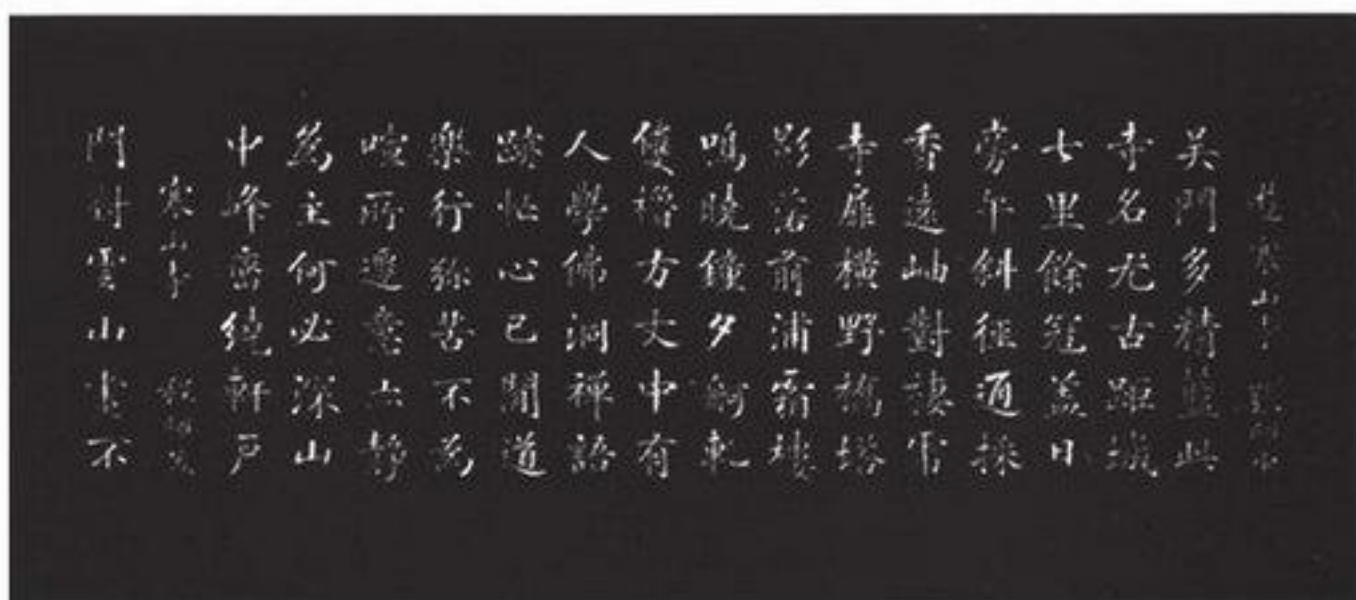 寒山寺
吴門多精藍此
寺名尤古距城
七里餘冠蓋日
旁午斜徑通採
香遠岫對棲
寺扉橫野橋塔
影落前浦霜樓
鳴曉鐘夕舸軋
雙櫓方丈中有
人學佛洞禪語
跡忙心已閒道
樂行弥苦不為
喧所遷意亦靜
為主何必深山
中峰巒繞軒戶
寒山寺
門對雲山畫不